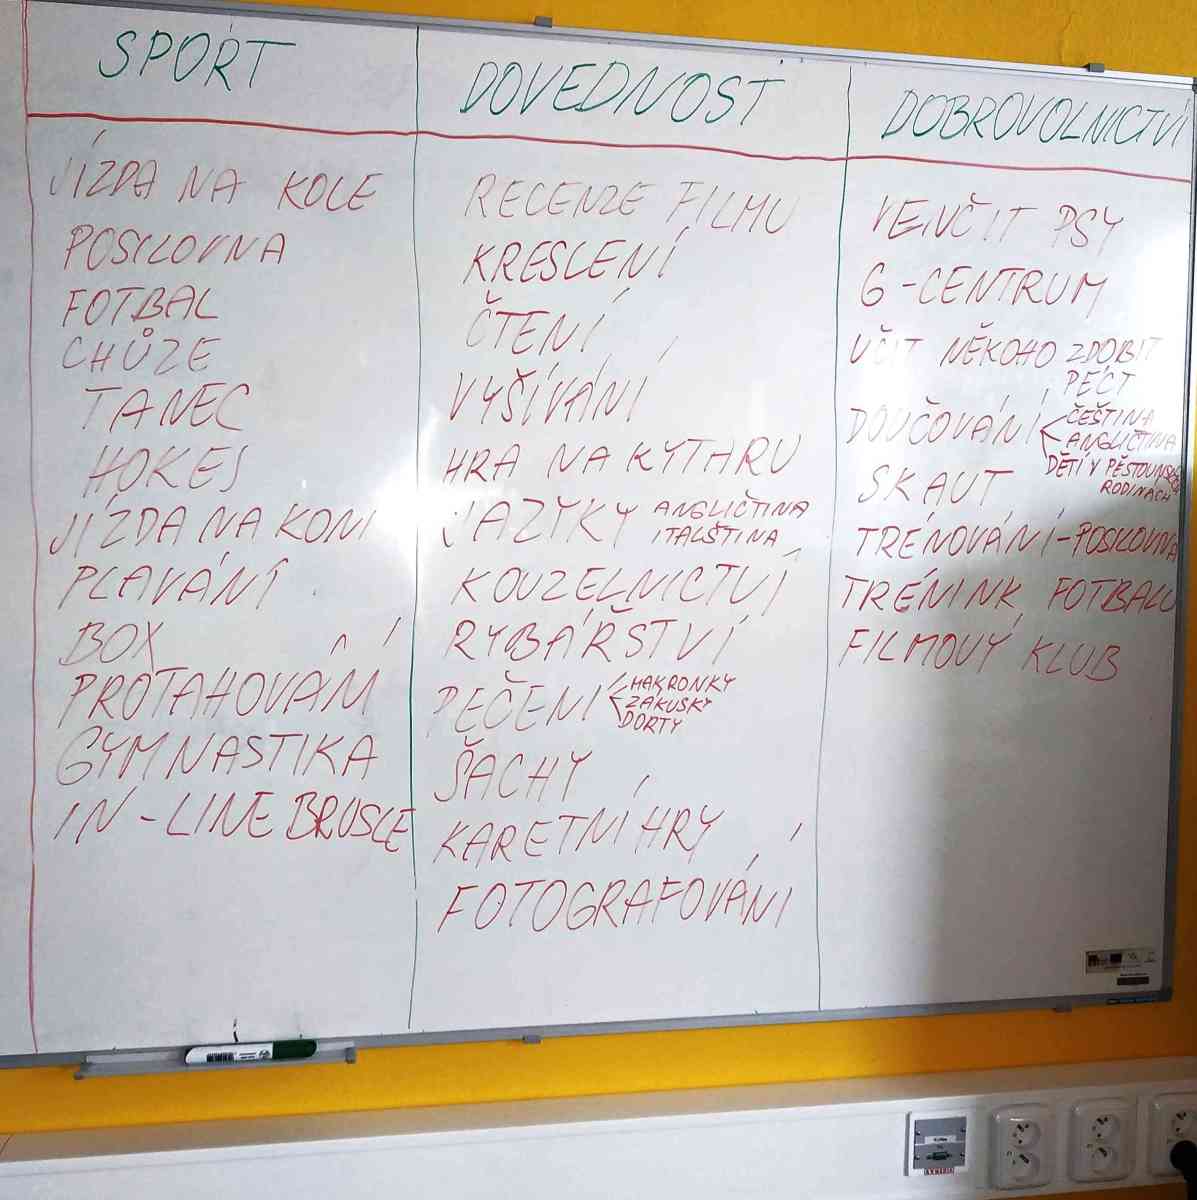 SPORT
JÍZDA NA KOLE
POSILOVNA
FOTBAL
CHŮZE
TANEC
HOKEJ
JÍZDA NA KONI
PLAVÁNÍ
BOX
PROTAHOVÁNÍ
GYMNASTIKA
IN-LINE BRUSLE
DOVEDNOST
RECENZE FILMU
KRESLENÍ
ČTENÍ
VYŠÍVÁNÍ
HRA NA KYTARU
JAZYKY ANGLIČTINA
ITALŠTINA
KOUZELNICTVÍ
RYBÁŘSTVÍ
PEČENÍ MAKRONKY
ZÁKUSKY
DORTY
ŠACHY
KARETNÍ HRY
FOTOGRAFOVÁNÍ
DOBROVOLNICTVÍ
VENČIT PSY
G-CENTRUM
UČIT NĚKOHO ZDOBIT
PÉCT
DOUČOVÁNÍ ČEŠTINA
ANGLIČTINA
DĚTÍ V PĚSTOUNSKÝCH
RODINÁCH
SKAUT
TRÉNOVÁNÍ-POSILOVNA
TRÉNINK FOTBALU
FILMOVÝ KLUB